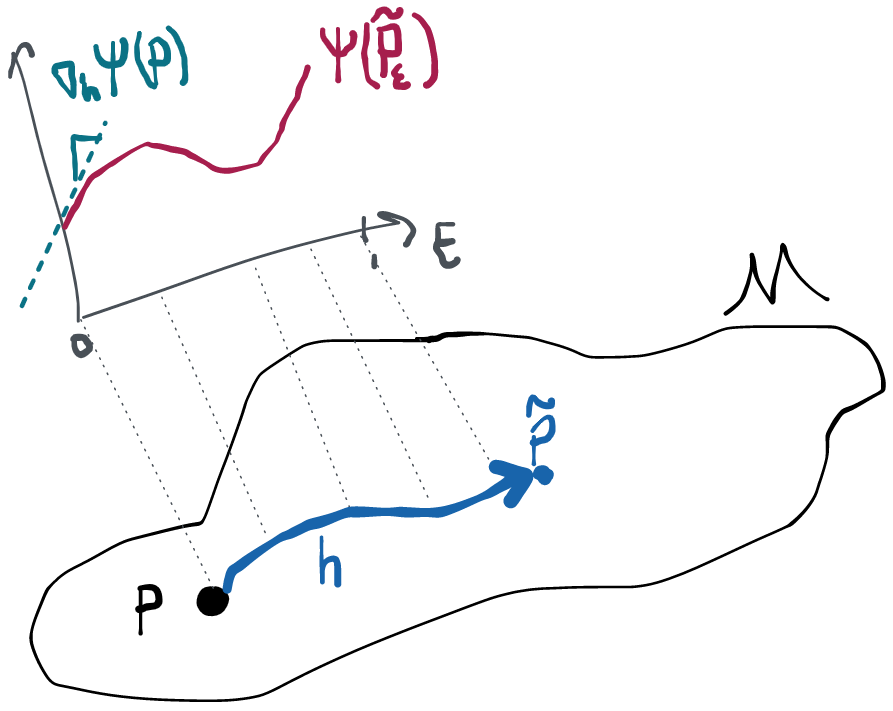 ∇ₕψ(P)
ψ(P̃_ε)
ε
0
1
M
P̃
h
P